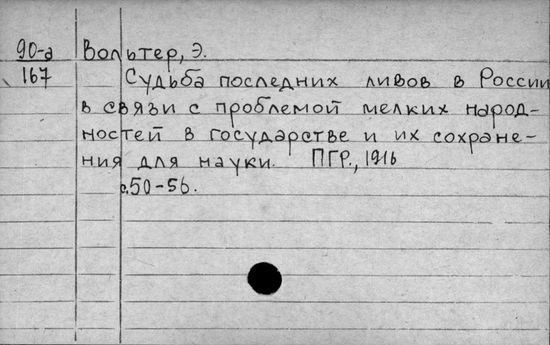 90-а Вольтер, Э.
167 Судьба последних ливов в России
в связи с проблемой мелких народ-
ностей в государстве и их сохране-
ния для науки. ПГР., 1916
с.50-56.